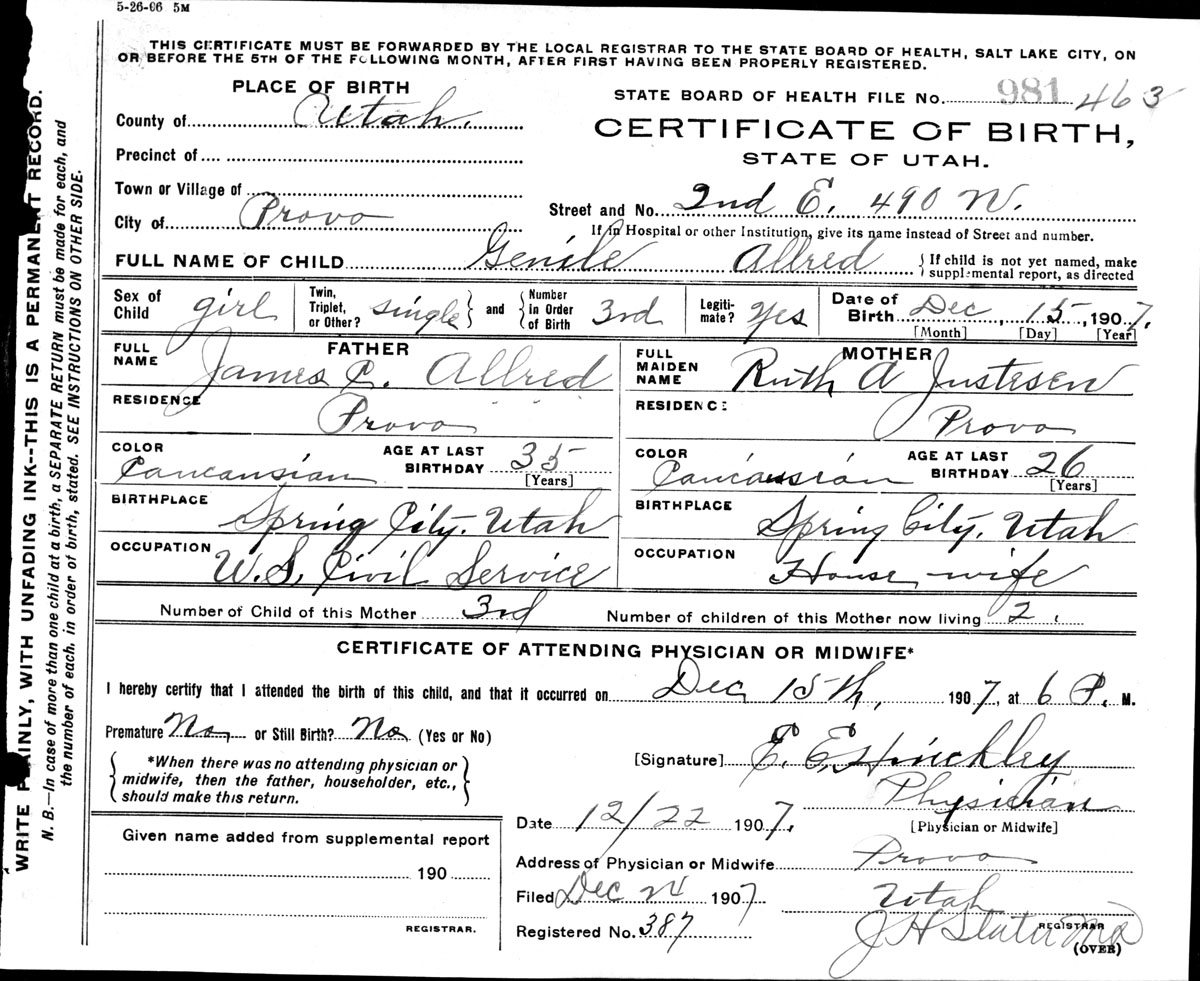 5-26-06 5M
THIS CERTIFICATE MUST BE FORWARDED BY THE LOCAL REGISTRAR TO THE STATE BOARD OF HEALTH, SALT LAKE CITY, ON
OR BEFORE THE 5TH OF THE FOLLOWING MONTH, AFTER FIRST HAVING BEEN PROPERLY REGISTERED.
WRITE PLAINLY, WITH UNFADING INK--THIS IS A PERMANENT RECORD.
N. B.—In case of more than one child at a birth, a SEPARATE RETURN must be made for each, and
the number of each, in order of birth, stated. SEE INSTRUCTIONS ON OTHER SIDE.
PLACE OF BIRTH
County of Utah.
Precinct of
Town or Village of
City of Provo
STATE BOARD OF HEALTH FILE No. 981 463
CERTIFICATE OF BIRTH,
STATE OF UTAH.
Street and No. 2nd E. 490 N.
If in Hospital or other Institution, give its name instead of Street and number.
FULL NAME OF CHILD Genile Allred { If child is not yet named, make
supplemental report, as directed
Sex of Child girl Twin, Triplet, or Other? single and Number in Order of Birth 3rd Legiti-mate? Yes Date of Birth Dec, 15, 1907,
[Month] [Day] [Year]
FATHER
FULL NAME James C. Allred
RESIDENCE Provo
COLOR Caucansian AGE AT LAST BIRTHDAY 35
[Years]
BIRTHPLACE Spring City, Utah
OCCUPATION U.S. Civil Service
MOTHER
FULL MAIDEN NAME Ruth A Justesen
RESIDENCE Provo
COLOR Caucassian AGE AT LAST BIRTHDAY 26
[Years]
BIRTHPLACE Spring City, Utah
OCCUPATION House-wife
Number of Child of this Mother 3rd Number of children of this Mother now living 2.
CERTIFICATE OF ATTENDING PHYSICIAN OR MIDWIFE*
I hereby certify that I attended the birth of this child, and that it occurred on Dec 15th, 1907, at 6 P. M.
Premature No, or Still Birth? No (Yes or No)
*When there was no attending physician or
midwife, then the father, householder, etc.,
should make this return.
[Signature] E. E. Hinckley
Physician
[Physician or Midwife]
Date 12/22 1907,
Address of Physician or Midwife Provo
Utah
Filed Dec 24 1907
Registered No. 387
J H Slater MD
REGISTRAR
(OVER)
Given name added from supplemental report
190
REGISTRAR.